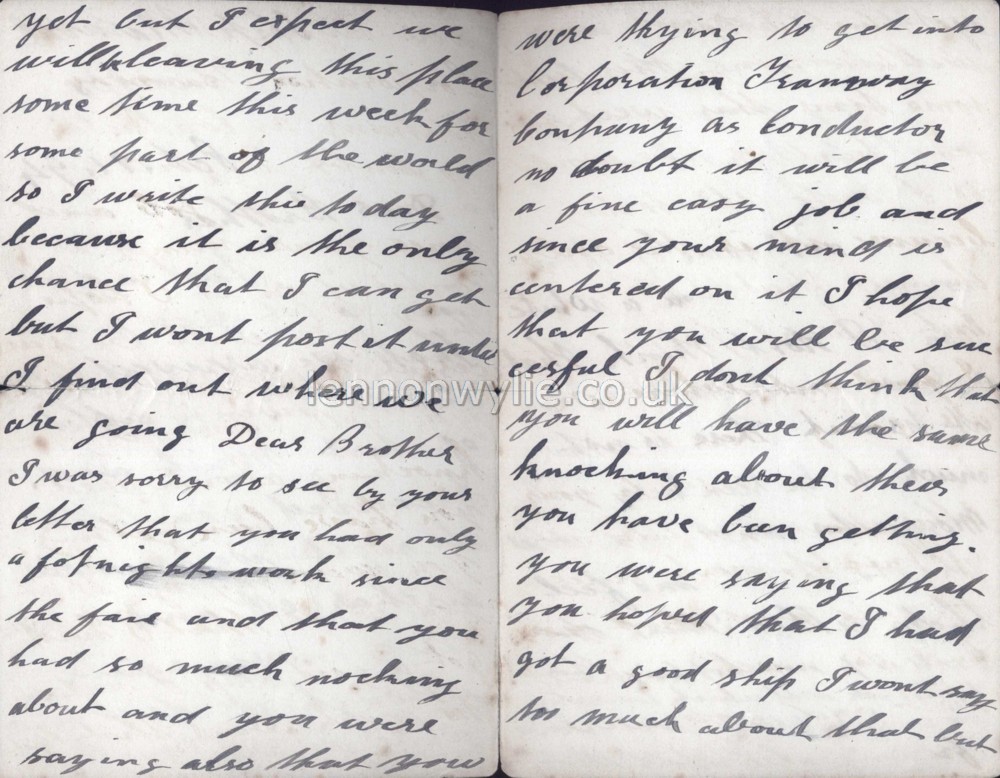 yet but I expect we
will be leaving this place
some time this week for
some part of the world
so I write this to day
because it is the only
chance that I can get
but I wont post it until
I find out where we
are going Dear Brother
I was sorry to see by your
letter that you had only
a fotnights work since
the fair and that you
had so much nocking
about and you were
saying also that you
were thying to get into
Corporation Tramway
Conpany as Conductor
no doubt it will be
a fine easy job and
since your mind is
centered on it I hope
that you will be suc
cesful I dont think that
you will have the same
knocking about thear
you have been getting.
you were saying that
you hoped that I had
got a good ship I wont say
too much about that but
lennonwylie.co.uk